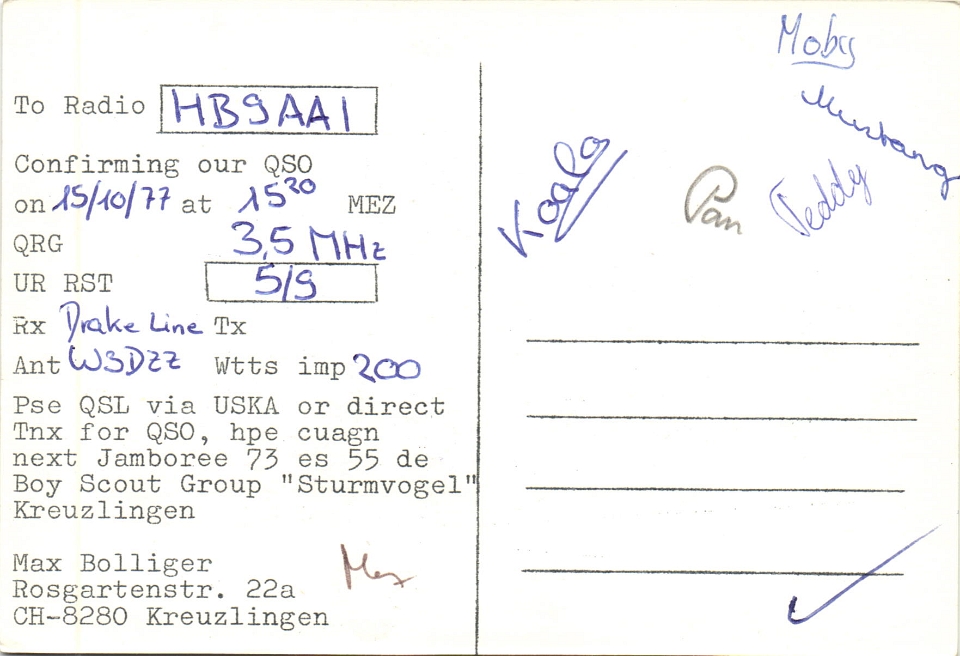 To Radio HB9AAI
Confirming our QSO
on 15/10/77 at 15³⁰ MEZ
QRG 3,5 MHz
UR RST 5/9
Rx Drake Line Tx
Ant W3DZZ Wtts imp 200
Pse QSL via USKA or direct
Tnx for QSO, hpe cuagn
next Jamboree 73 es 55 de
Boy Scout Group "Sturmvogel"
Kreuzlingen
Max Bolliger
Rosgartenstr. 22a
CH-8280 Kreuzlingen
Max
Moby
Mustang
Koala
Pan
Teddy